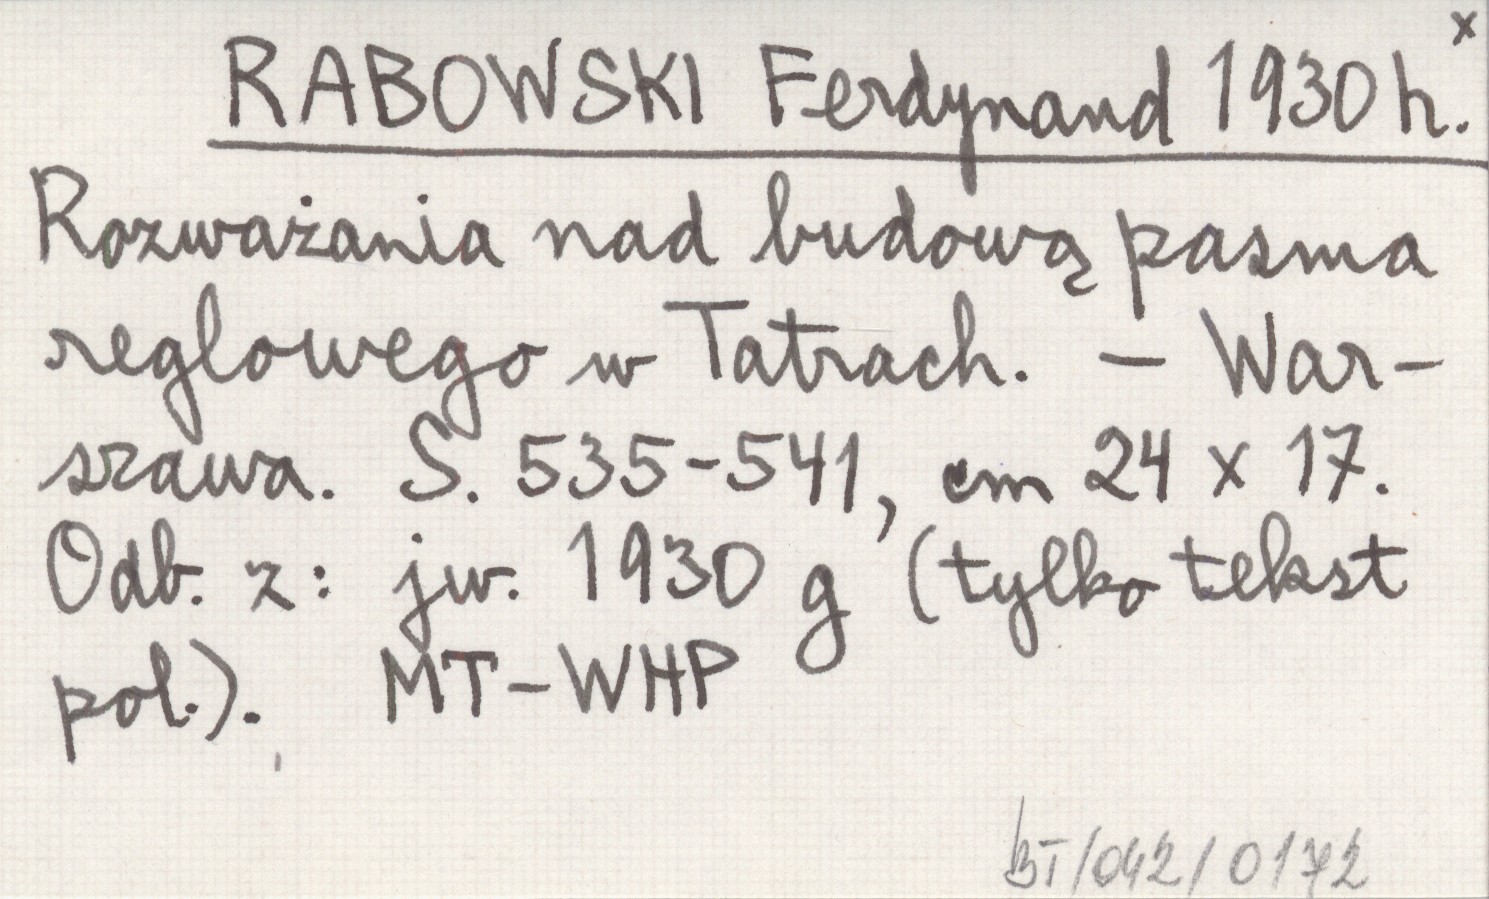 x
RABOWSKI Ferdynand 1930 h.
Rozważania nad budową pasma
reglowego w Tatrach. – War-
szawa. S. 535-541, cm 24 x 17.
Odb. z: jw. 1930 g (tylko tekst
pol.). MT-WHP
BT/042/0172